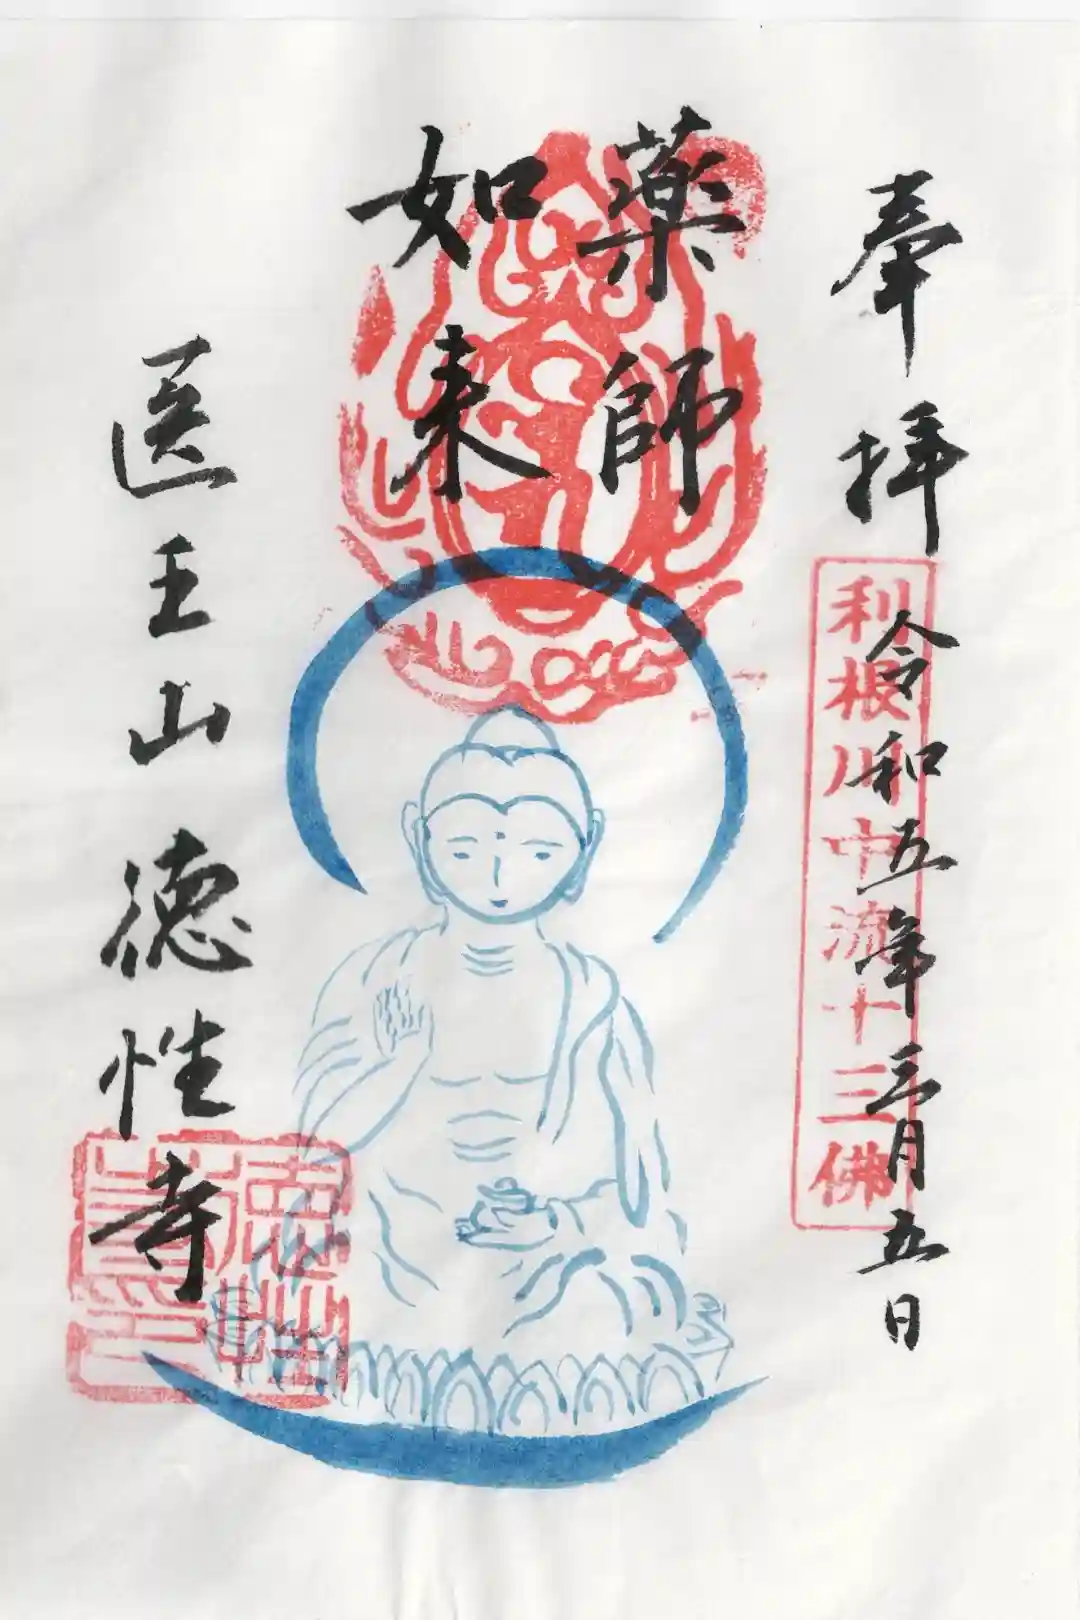 奉拝
利根川中流十三佛
令和五年三月五日
薬師
如来
医王山徳性寺